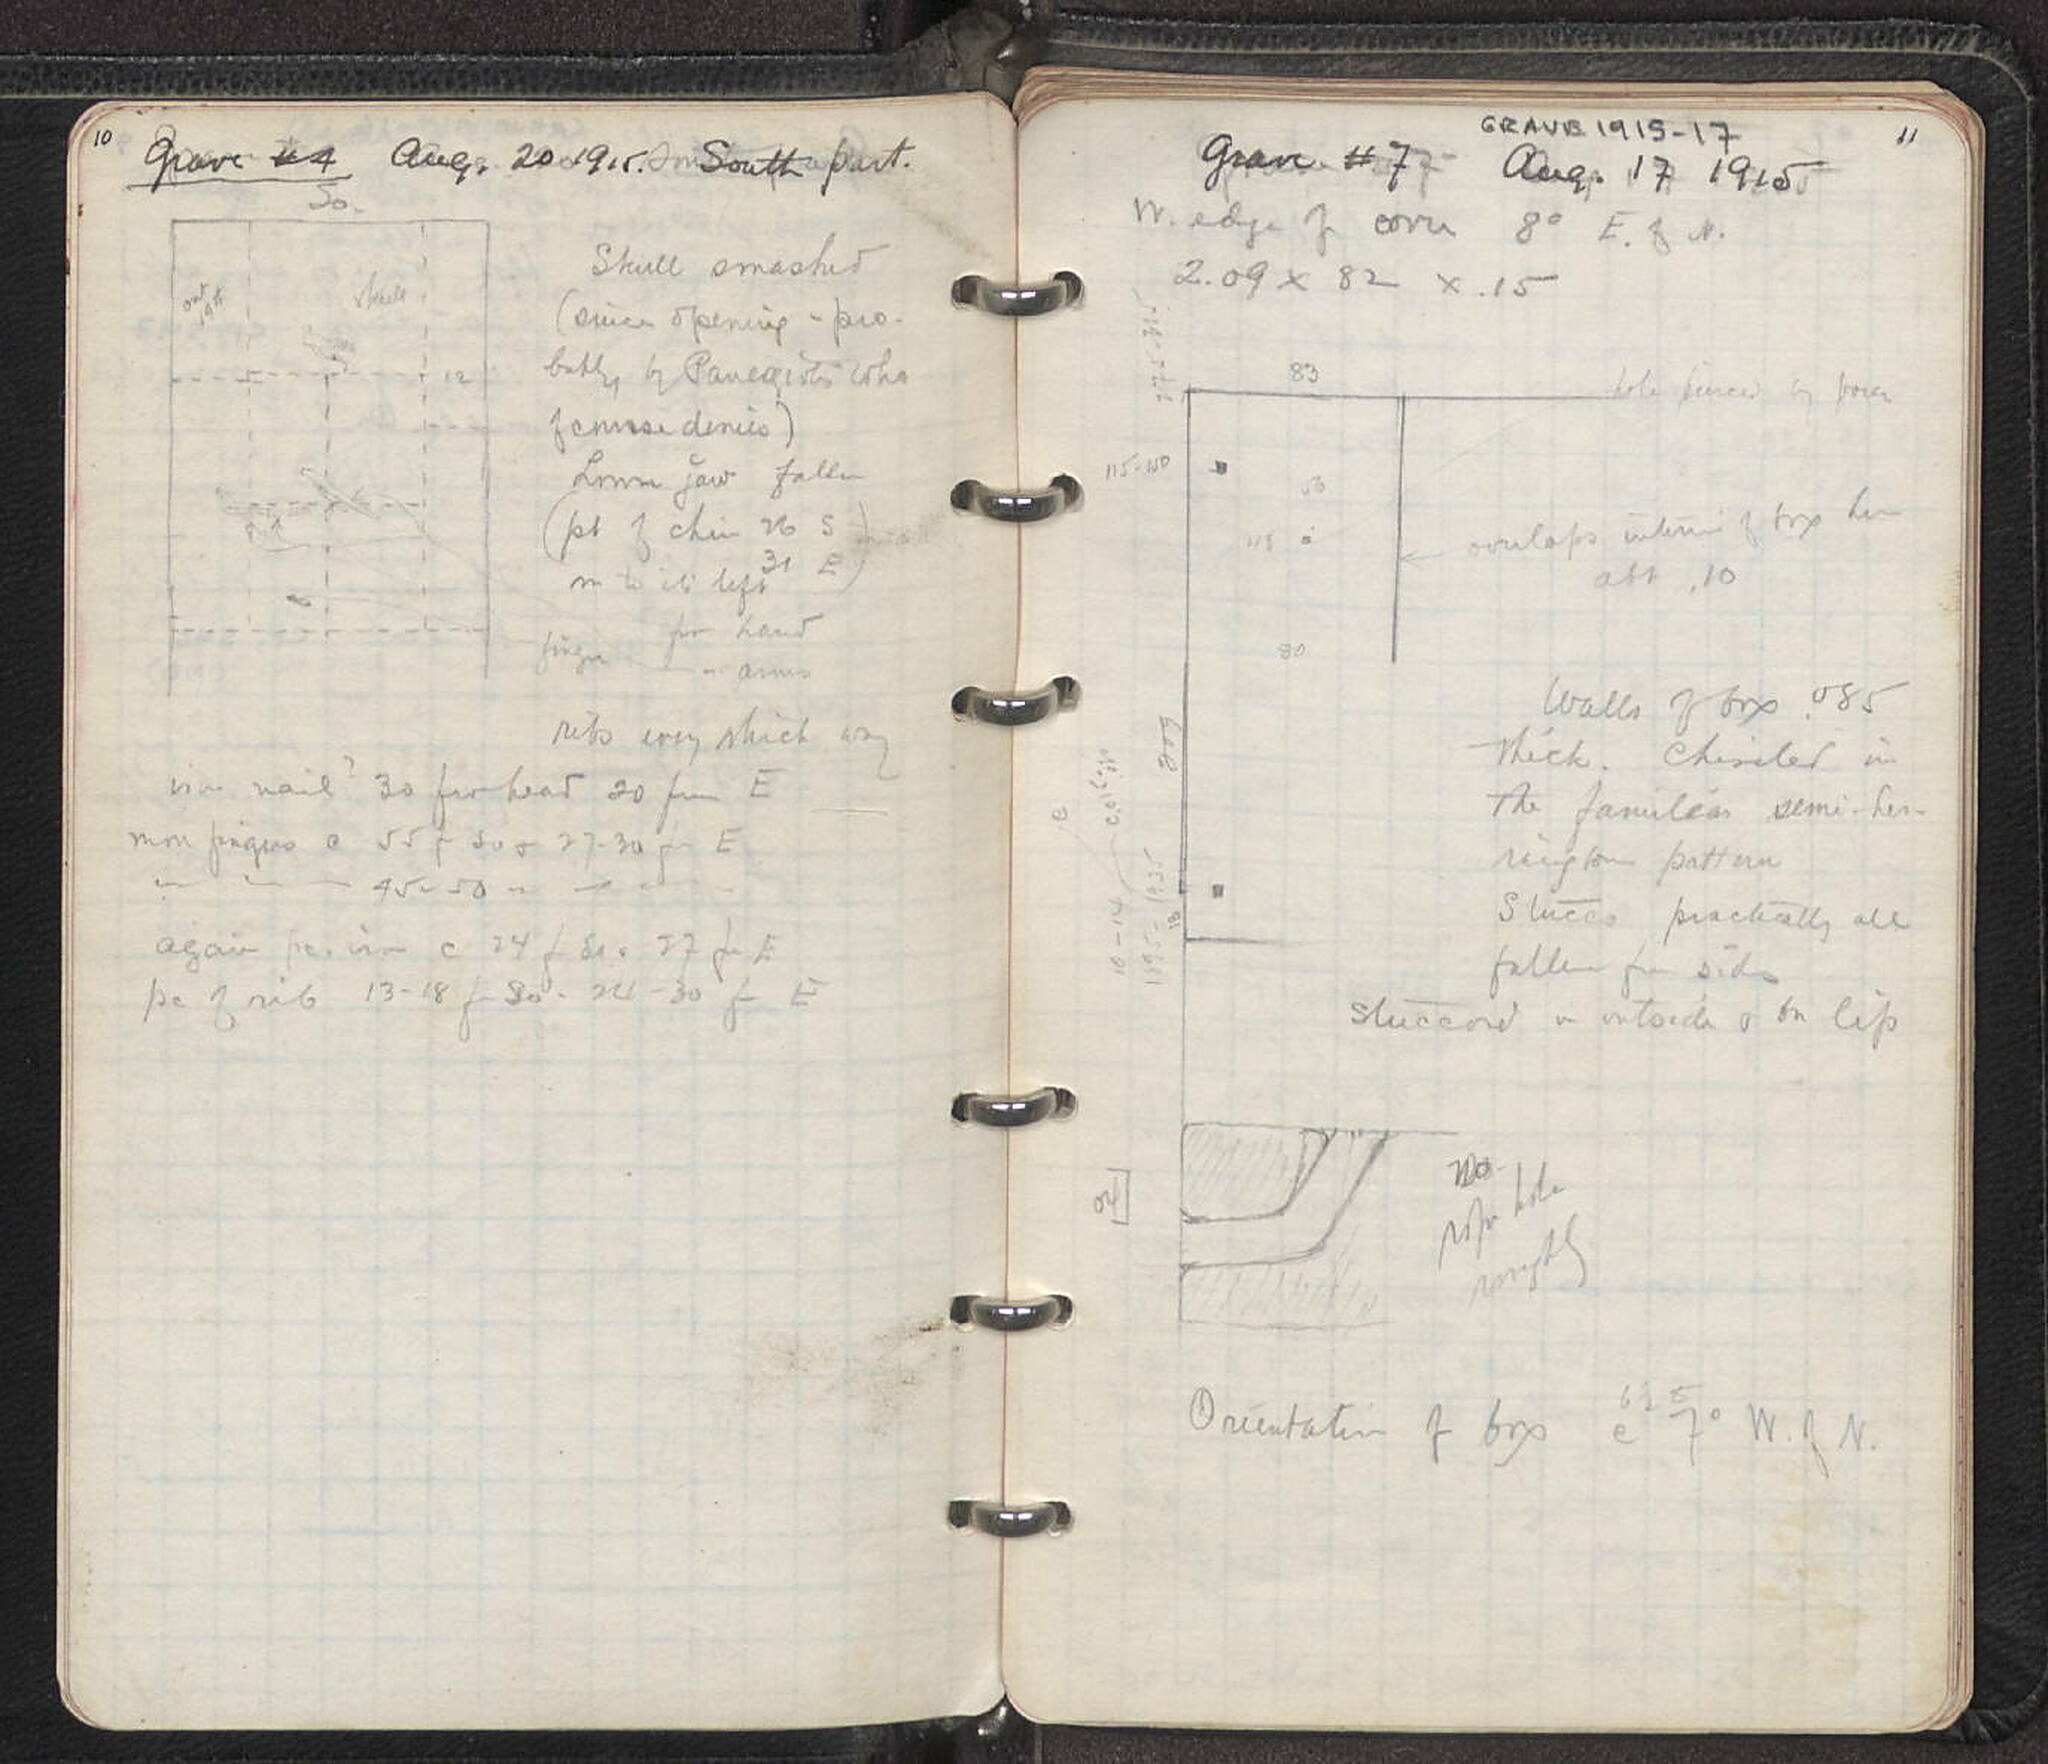 10
Grave #4 Aug. 20 1915. South part.
So.
out 19th
skull
12
Skull smashed
(since opening - pro-
bably by Panegiotis who
of course denies)
Lower jaw fallen
(pt of chin 26 S
31 E)
on to its left
finger for hand
" arms
ribs every which way
iron nail? 30 fr head 20 from E
more fingers c 55 f So & 27-30 fr E
" " 45-50 " "
again pc. iron c 24 f So. 27 fr E
pc of rib 13-18 f So. 24-30 fr E
11
GRAVE 1915-17
Grave #7 Aug. 17 1915
W. edge of cover 8° E. of N.
2.09 x 82 x .15
83
hole pierced by
115-150
53
115
overlaps interior of box here
abt .10
80
209
Walls of box .085
thick. Chiseled in
the familiar semi-her-
ringbone pattern
Stucco practically all
fallen fr sides
Stuccoed on outside & on lip
10-14
18
rope hole
roughly
Orientation of box c 7° W. of N.